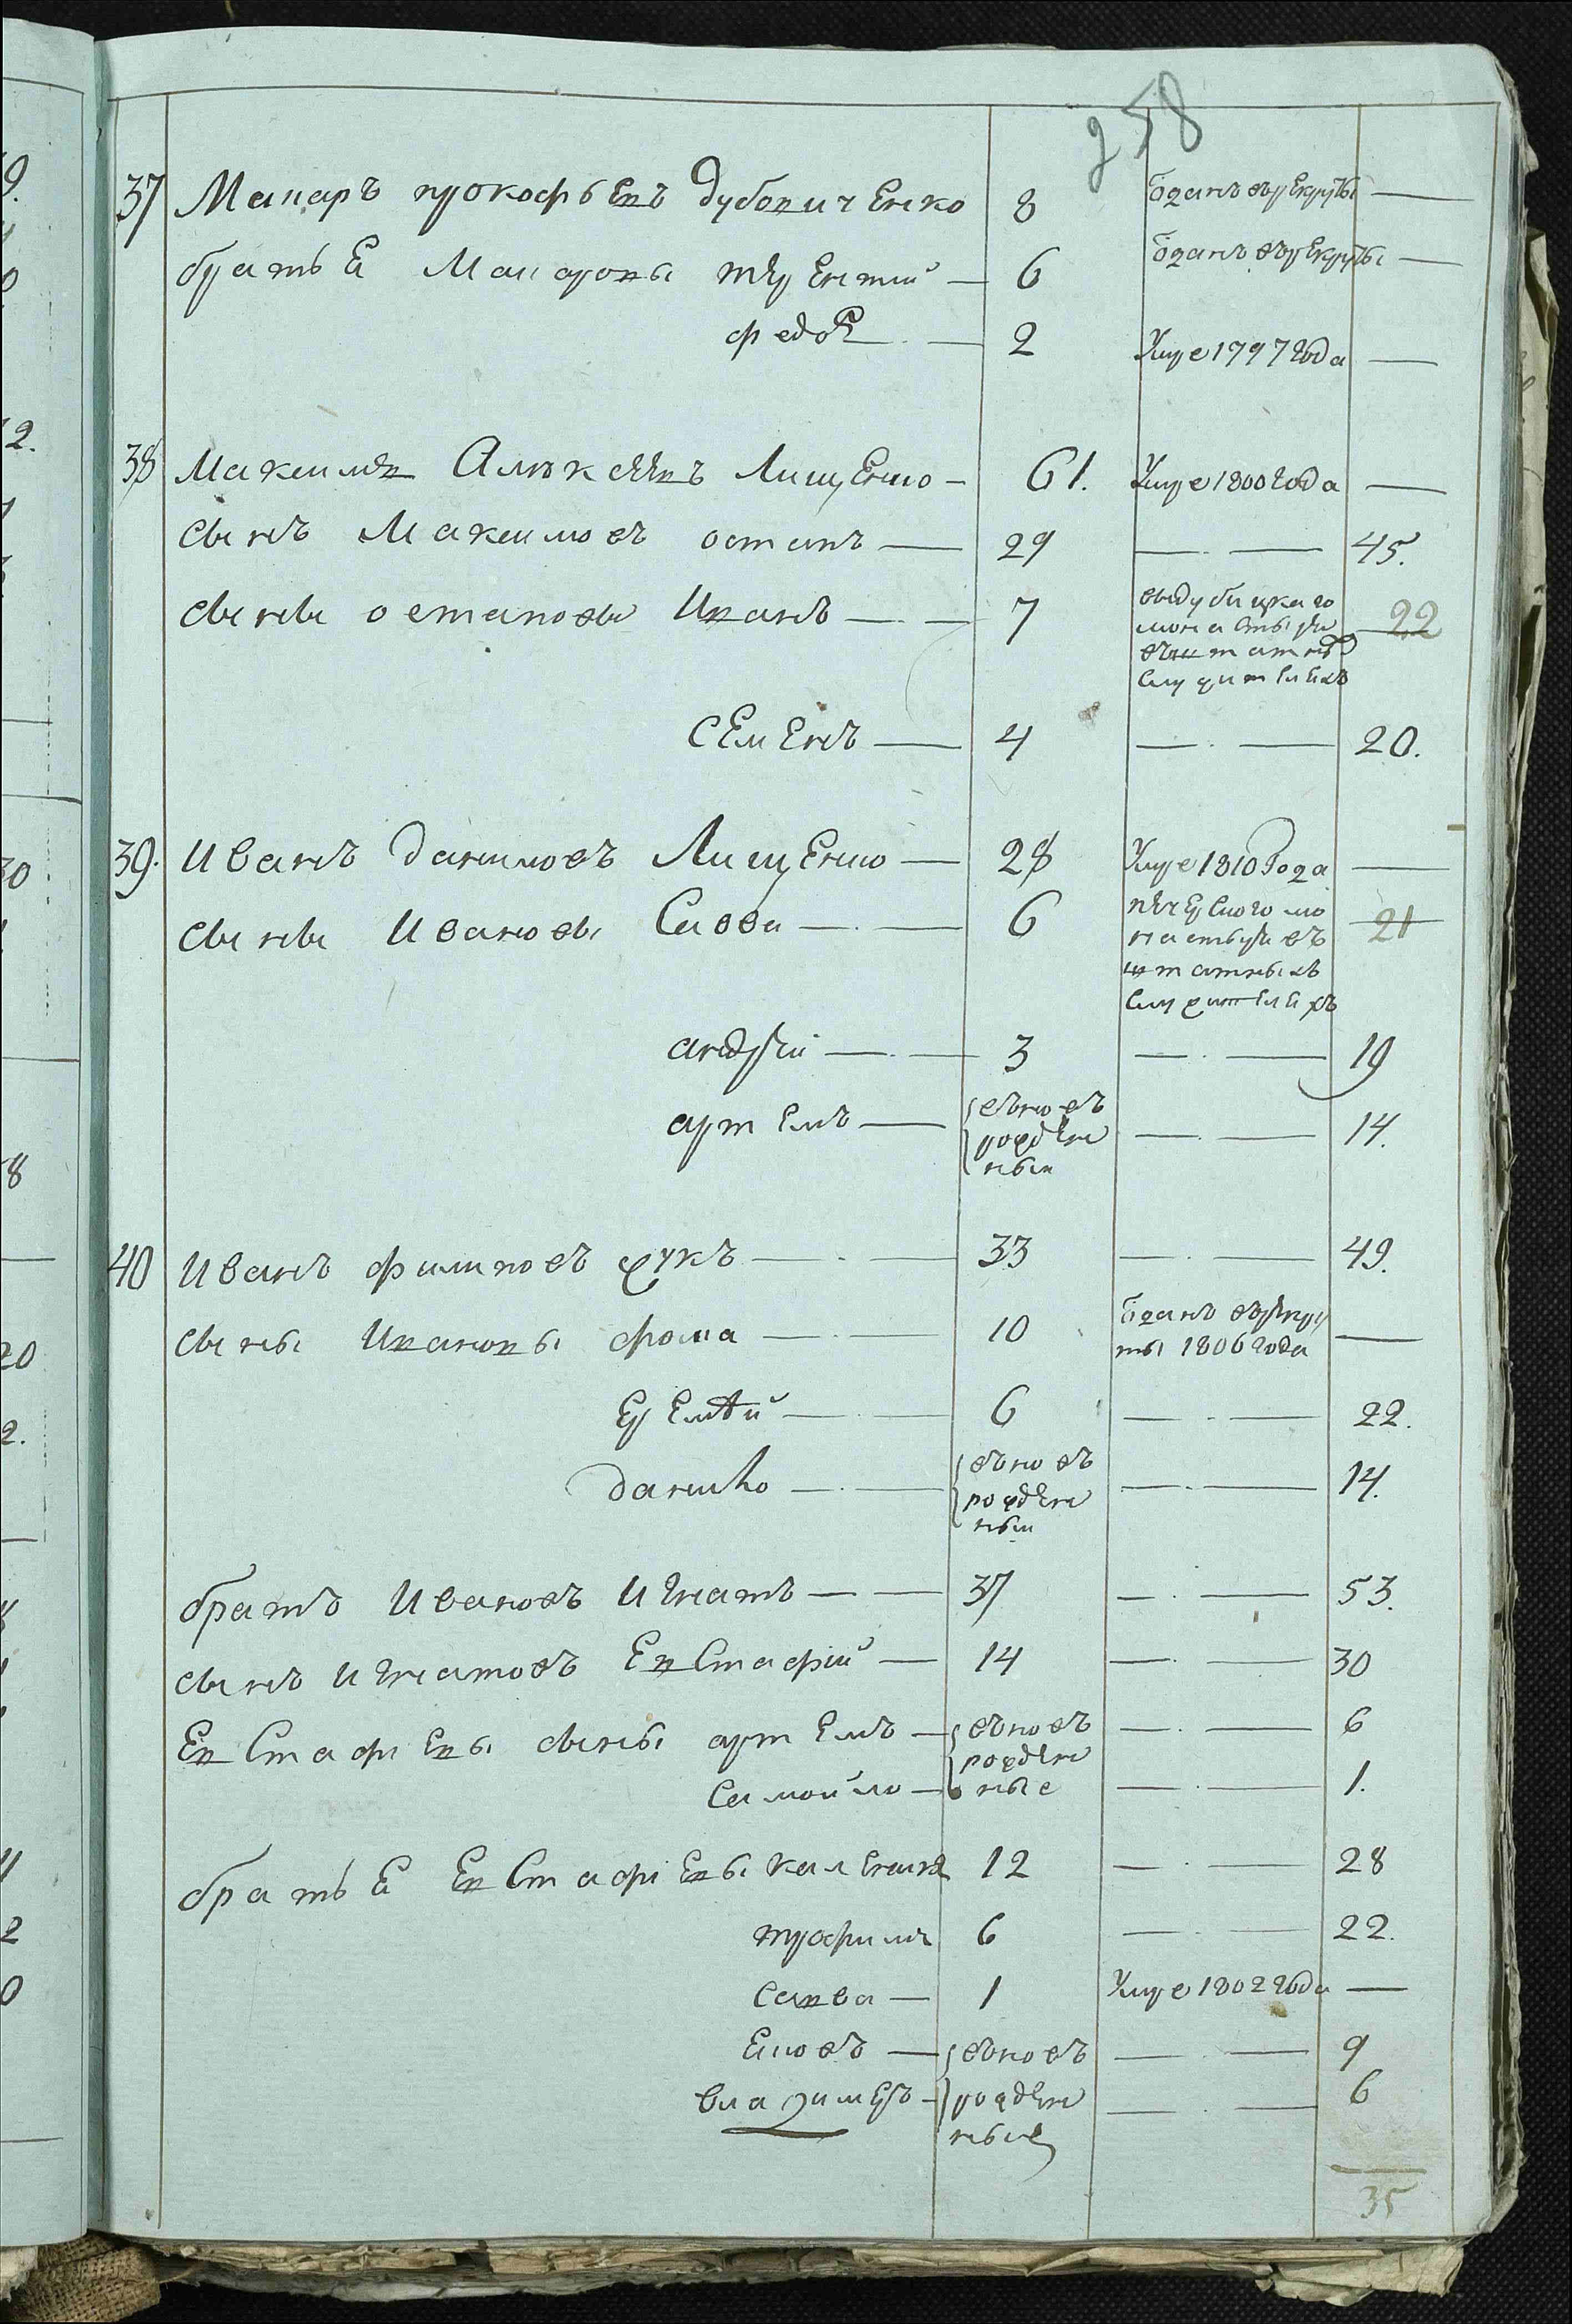 258
37 Макаръ прокофьевъ дубовиченко 8 Отданъ врекруты —
братьЕ Макаровы терентий — 6 Отданъ врекруты —
федоръ — 2 Умре 1797 года —
38 Максимъ Алексѣевъ Лищенко — 61. Умре 1800 года —
сынъ Максимовъ остапъ — 29 — 45.
сыны остаповы Иванъ — 7 выдубицкаго монастыря въштатныхъ служителяхъ 22
семенъ — 4 — 20.
39. Иванъ даниловъ Лищенко — 28 Умре 1810 года —
сыны Ивановы Савва — 6 печерского монастыря въ штатныхъ служителяхъ 21
андрѣй — 3 — 19
артемъ — въновъ рожденный — 14.
40 Иванъ филиповъ жукъ — 33 — 49.
сыны Ивановы фома — 10 Отданъ врекруты 1806 года —
Еремѣй — 6 — 22.
данило — въновъ рожденный — 14.
братъ Ивановъ Игнатъ — 37 — 53.
сынъ Игнатовъ Евстафій — 14 — 30
Евстафіевы сыны артемъ — въновъ рожденные — 6
Самойло — 1.
братьЕ Евстафіевы каленикъ 12 — 28
трофимъ 6 — 22.
Савва — 1 Умре 1802 года —
въновъ рожденные — 9
владимеръ — 6
35